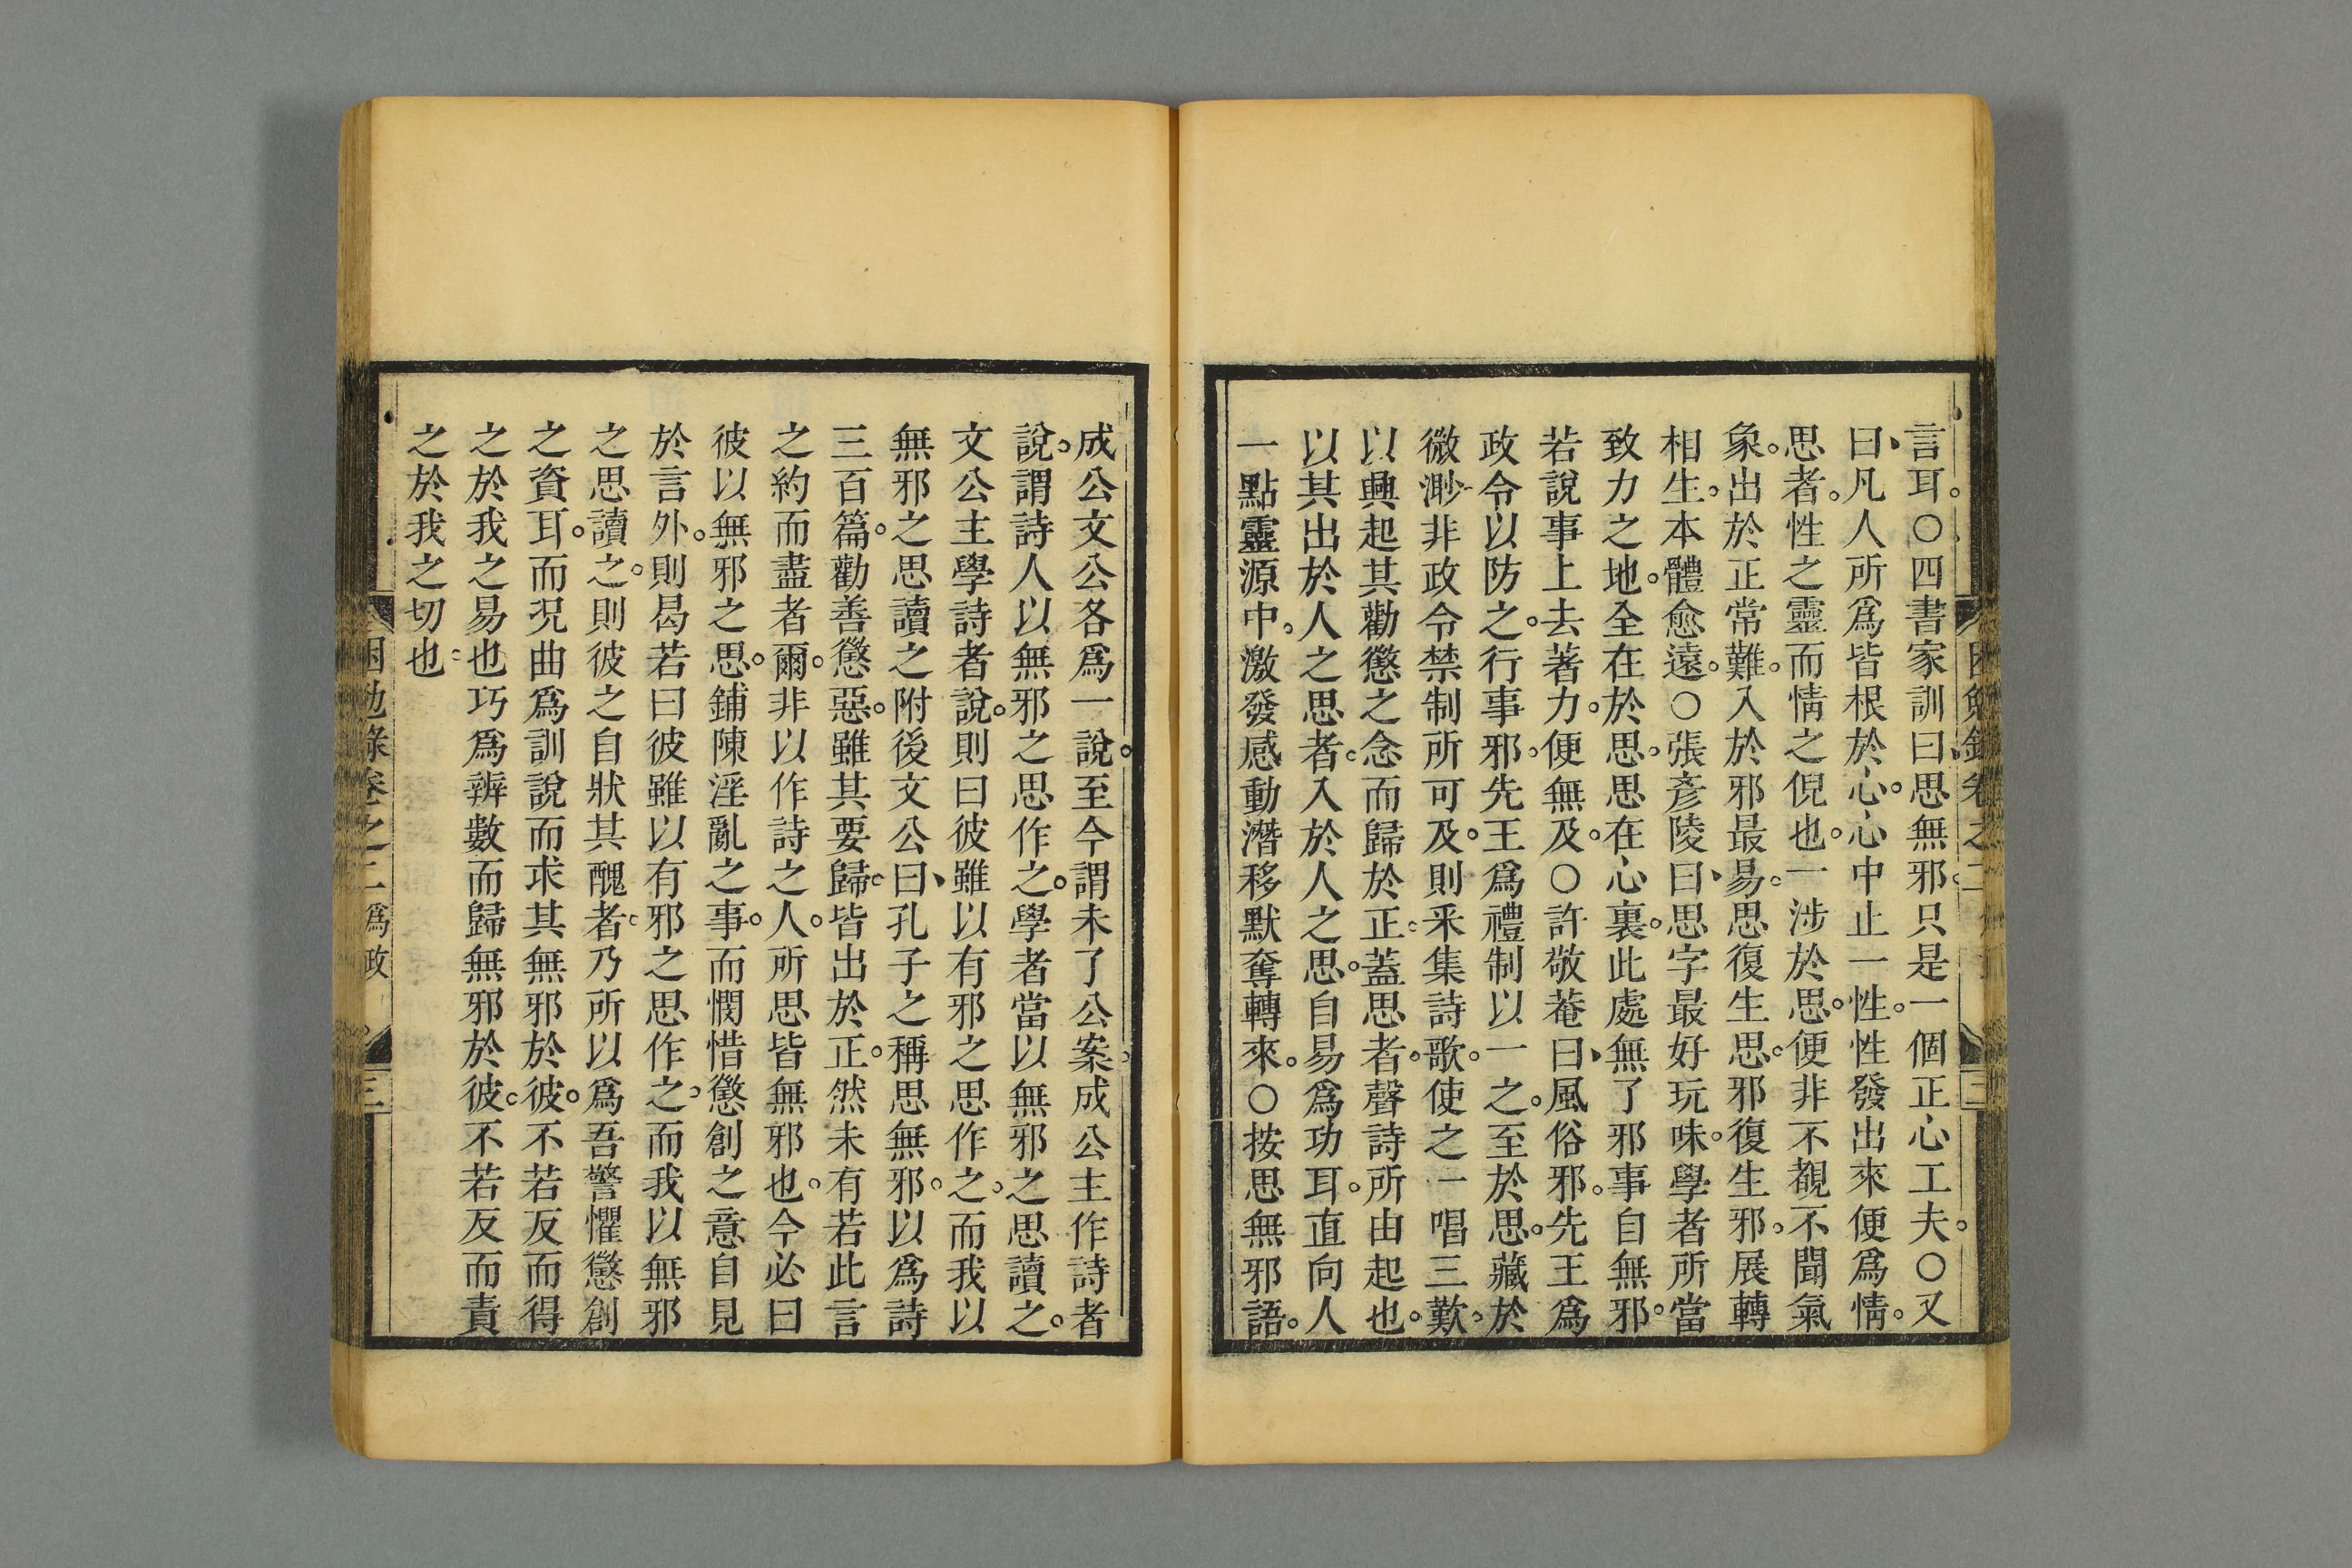 言耳。○四書家訓曰思無邪。只是一個正心工夫。○又
曰、凡人所爲皆根於心。心中止一性。性發出來便爲情。
思者。性之靈而情之倪也。一涉於思。便非不覩不聞氣
象。出於正常難。入於邪最易。思復生思。邪復生邪。展轉
相生。本體愈遠。○張彥陵曰、思字最好玩味。學者所當
致力之地。全在於思。思在心裏。此處無了邪事自無邪。
若說事上去著力。便無及。○許敬菴曰、風俗邪。先王爲
政令以防之。行事邪。先王爲禮制以一之。至於思。藏於
微渺非政令禁制所可及。則釆集詩歌。使之一唱三歎。
以興起其勸懲之念而歸於正。蓋思者。聲詩所由起也。
以其出於人之思者。入於人之思。自易爲功耳。直向人
一點靈源中。激發感動潛移默奪轉來。○按思無邪語。
成公文公各爲一說。至今謂未了公案。成公主作詩者
說。謂詩人以無邪之思作之。學者當以無邪之思讀之。
文公主學詩者說。則曰彼雖以有邪之思作之。而我以
無邪之思讀之附後文公曰、孔子之稱思無邪。以爲詩
三百篇。勸善懲惡。雖其要歸。皆出於正。然未有若此言
之約而盡者爾。非以作詩之人。所思皆無邪也。今必曰
彼以無邪之思。鋪陳淫亂之事。而憫惜懲創之意自見
於言外。則曷若曰彼雖以有邪之思作之。而我以無邪
之思讀之。則彼之自狀其醜者。乃所以爲吾警懼懲創
之資耳。而況曲爲訓說而求其無邪於彼。不若反而得
之於我之易也巧爲辨數而歸無邪於彼。不若反而責
之於我之切也。
困勉錄卷之二 爲政 三